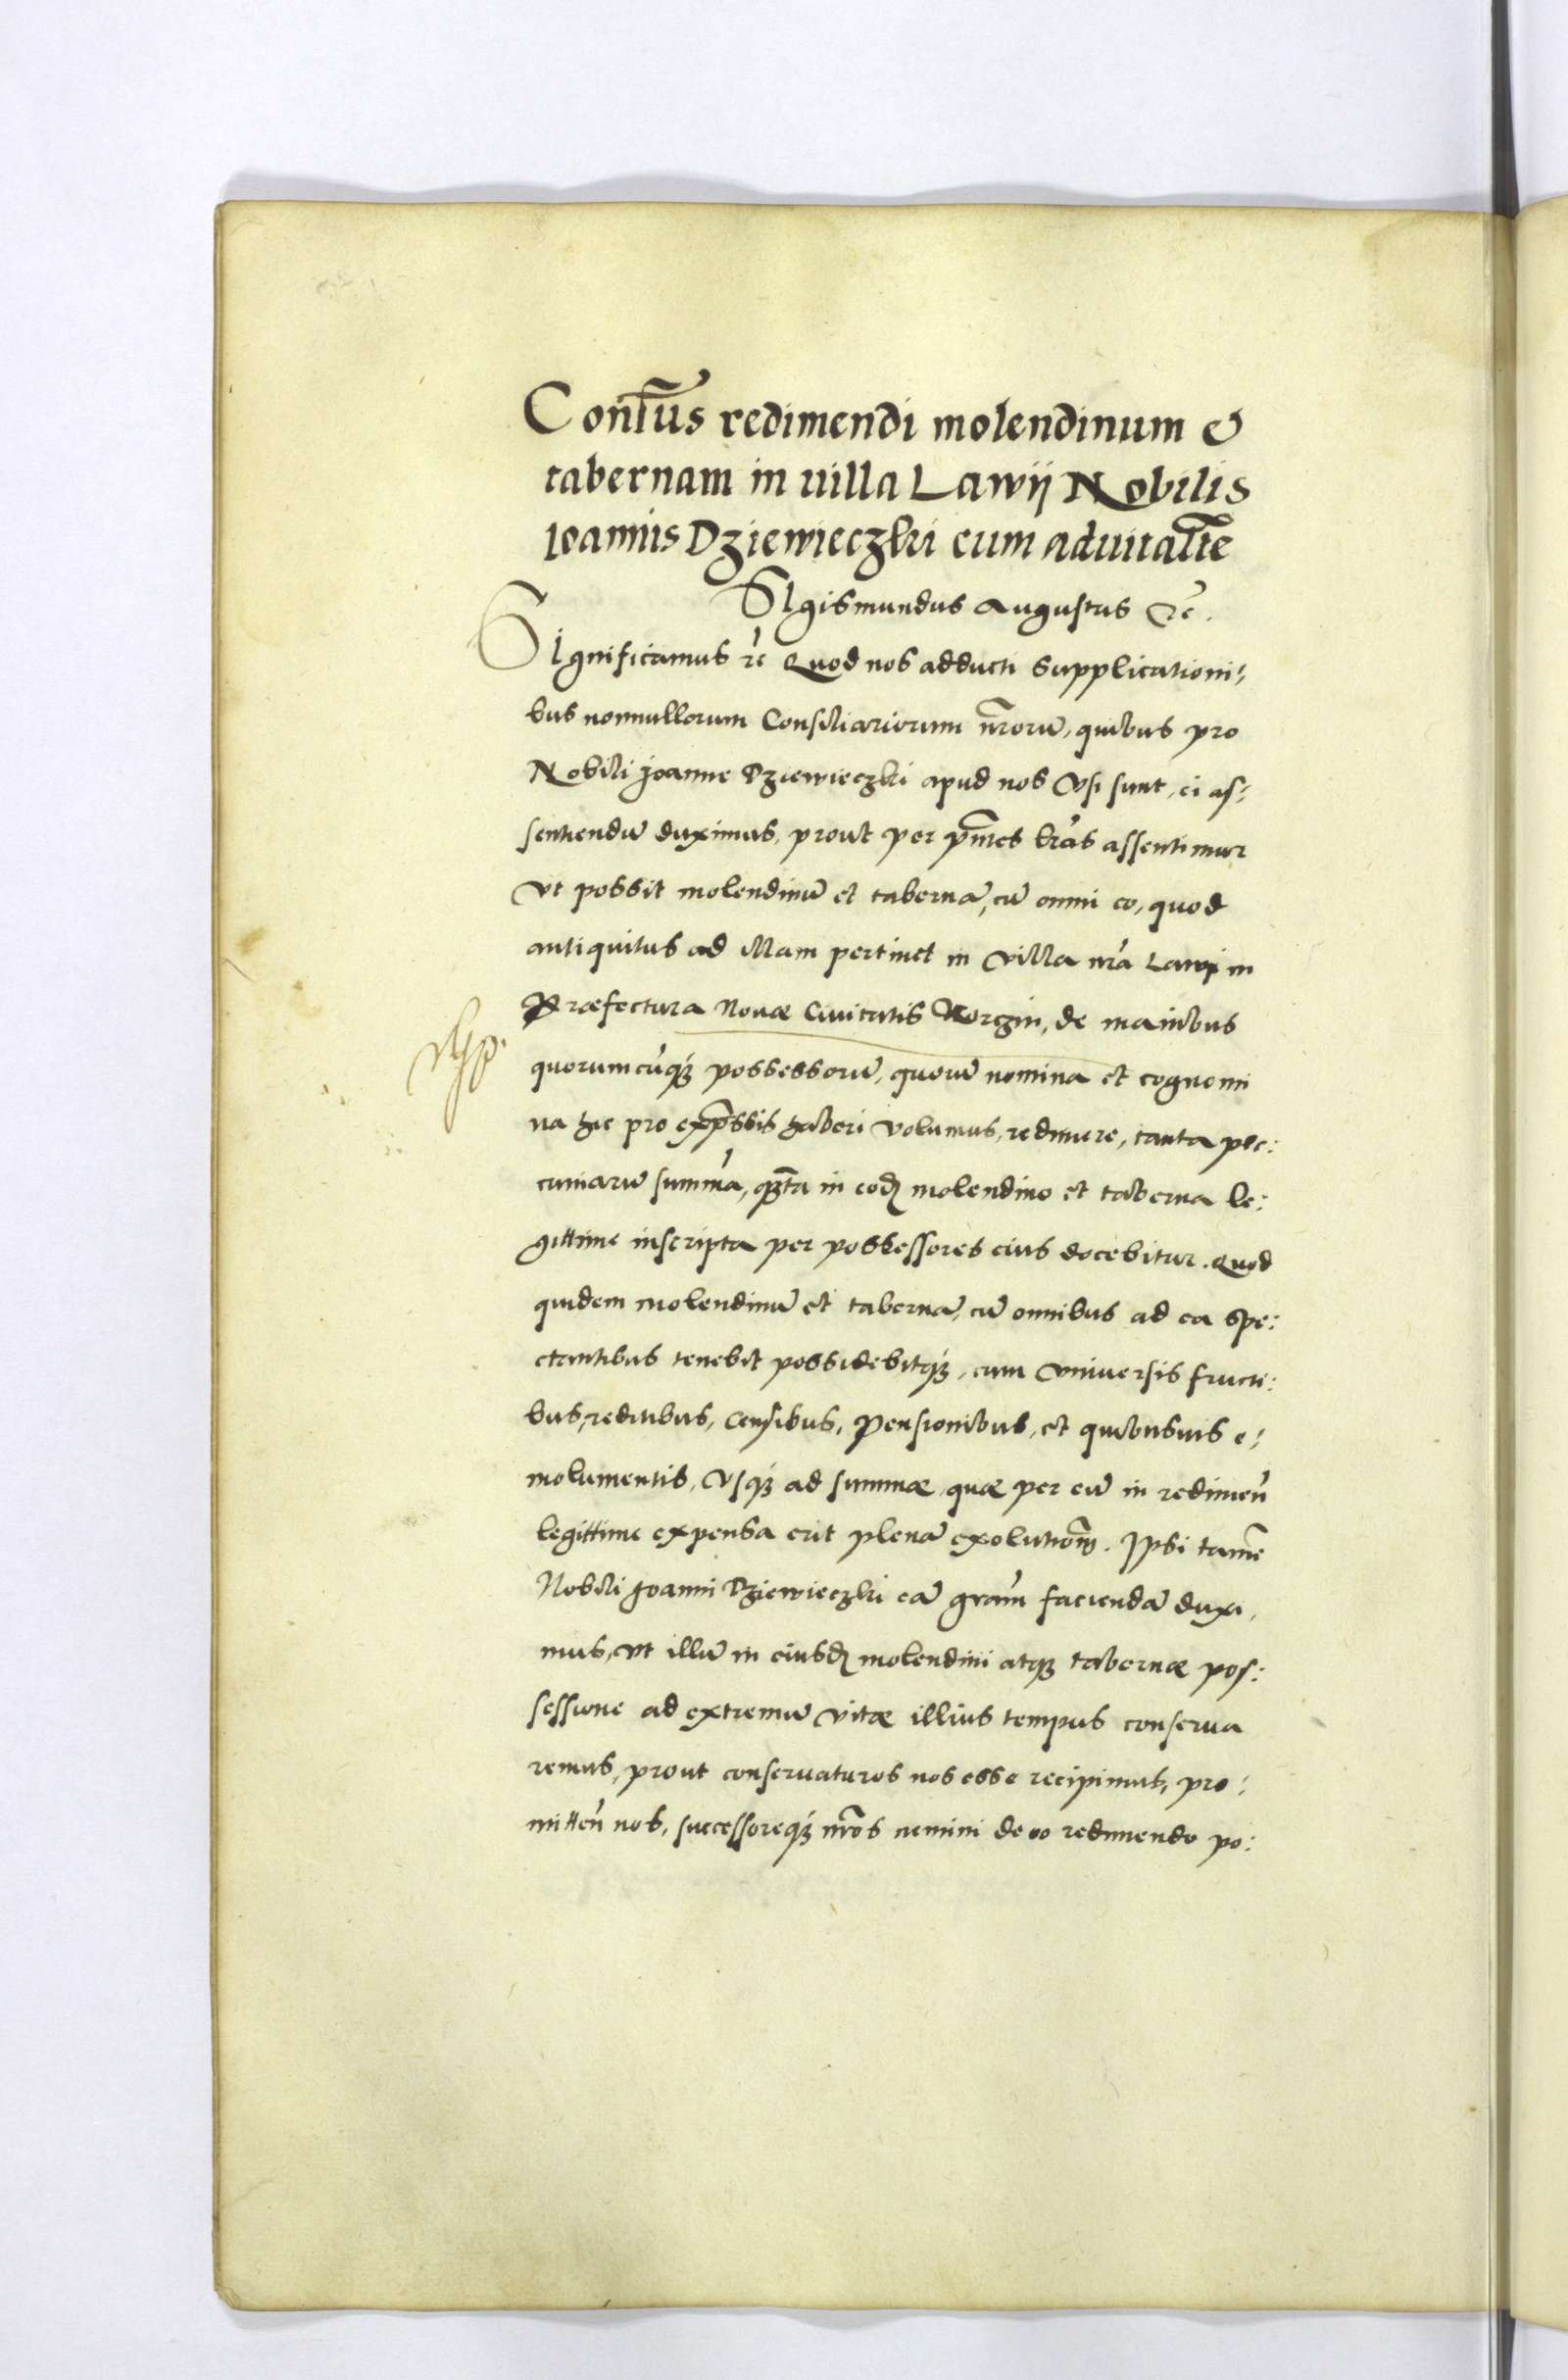 Conſūs redimendi molendinum &
tabernam in uilla Lawÿ Nobilis
Ioannis Dziewieczki cum aduitałte
SIgismundus Augustus &c̃.
SIgnificamus &c̃ Quod nos adducti supplicationi-
bus nonnullorum Consiliariorum nr̃orū, quibus pro
Nobili Joanne Dziewieczki apud nos vsi sunt, ei as-
sentiendū duximus, prout per pn̄tes lrãs assentimur
vt possit molendinū et tabernā, cū omni eo, quod
antiquitus ad illam pertinet in villa nrã Lawy in
Præfectura Nouæ Ciuitatis Korczin, de manibus
quorumcūq̃ possessorū, quorū nomina et cognomi
na hic pro exp̄ssis haberi volumus, redimere, tanta pec:
cuniarū summa, qn̄ta in eod̃ molendino et taberna le:
gittime inscripta per possessores eius docebitur. Quod
quidem molendinū et tabernā, cū omnibus ad ea spe:
ctantibus tenebit possidebitq̃, cum vniuersis fructi:
bus, reditibus, censibus, pensionibus, et quibusuis e-
molumentis, vsq̃ ad summæ, quæ per eū in redimeñ
legittime expensa erit plenā exolutionē̃. Ipsi tamē
Nobili Joanni Dziewieczki eā grãm faciendā duxi,
mus, vt illū in eiusd̃ molendini atq̃ tabernæ pos:
sessione ad extremū vitæ illius tempus conserua
remus, prout conseruaturos nos esse recipimus, pro-
mitteñ nos, successoresq̃ nr̃os nemini de eo redimendo po: